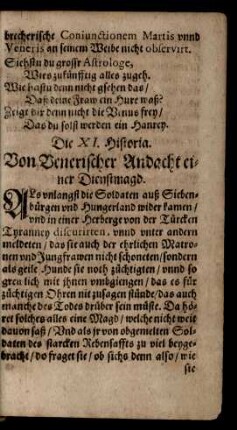 brecherische Coniunctionem Martis vnnd
Veneris an seinem Weibe nicht observirt.
Siehstu du grosser Astrologe,
Wies zukünfftig alles zugeh.
Wie hastu denn nicht gsehen das/
Daß deine Fraw ein Hure waß?
Zeigt dir denn nicht die Venus frey/
Das du solst werden ein Hanrey.
Die XI. Historia.
Von Venerischer Andacht ei-
ner Dienstmagd.
ALs vnlangst die Soldaten auß Sieben-
bürgen vnd Hungerland wider kamen/
vnd in einer Herberge von der Türcken
Tyranney discurirten, vnnd vnter andern
meldeten/ das sie auch der ehrlichen Matro-
nen vnd Jungfrawen nicht schoneten/ sondern
als geile Hunde sie noth züchtigten/ vnnd so
grewlich mit ihnen vmbgiengen/ das es für
züchtigen Ohren nit zusagen stünde/ das auch
manche des Todes drüber sein müste. Da hö-
ret solches alles eine Magd/ welche nicht weit
davon saß/ Vnd als jr von obgemelten Sol-
daten des starcken Rebensaffts zu viel beyge-
bracht/ do fraget sie/ ob sichs denn also/ wie
sie